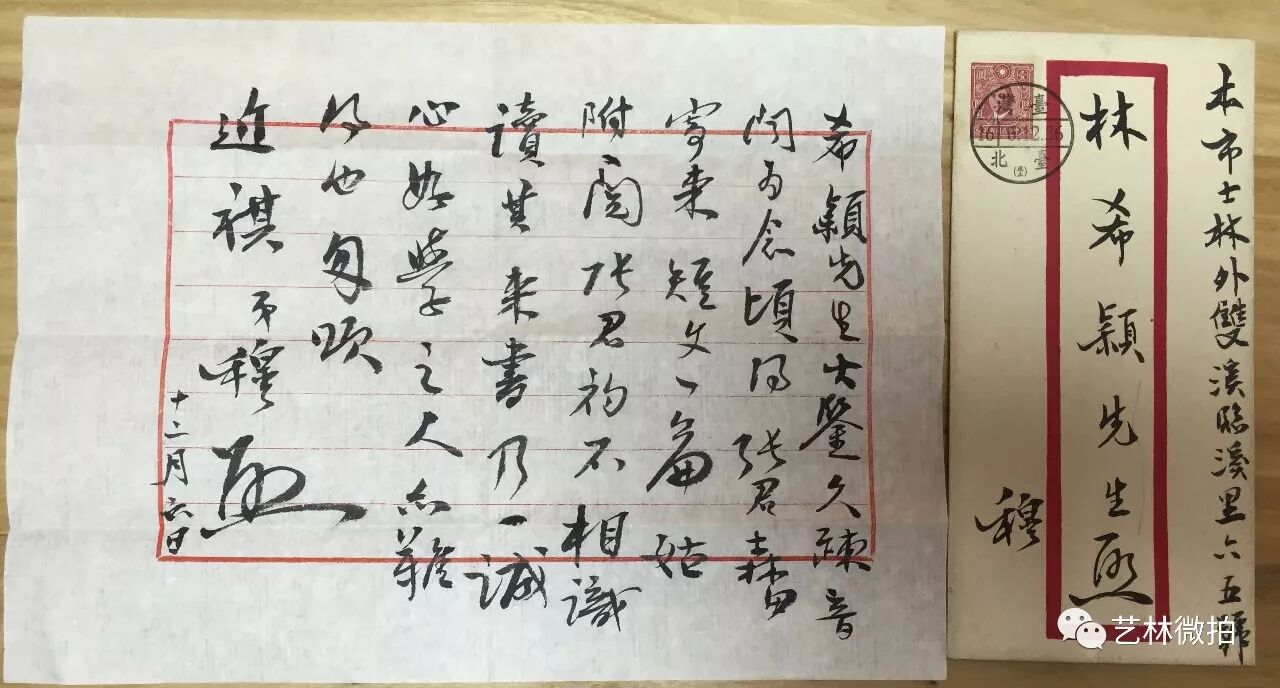 希穎先生大鑒久疎音
問為念頃得張君森
寄来短文一篇
附閱张君初不相識
讀其来書乃一誠
心好學之人亦難
得也匆頌
近祺 弟穆
十二月六日
木市士林外雙溪臨溪里六五號
林希穎先生
穆
臺灣
臺北
艺林微拍